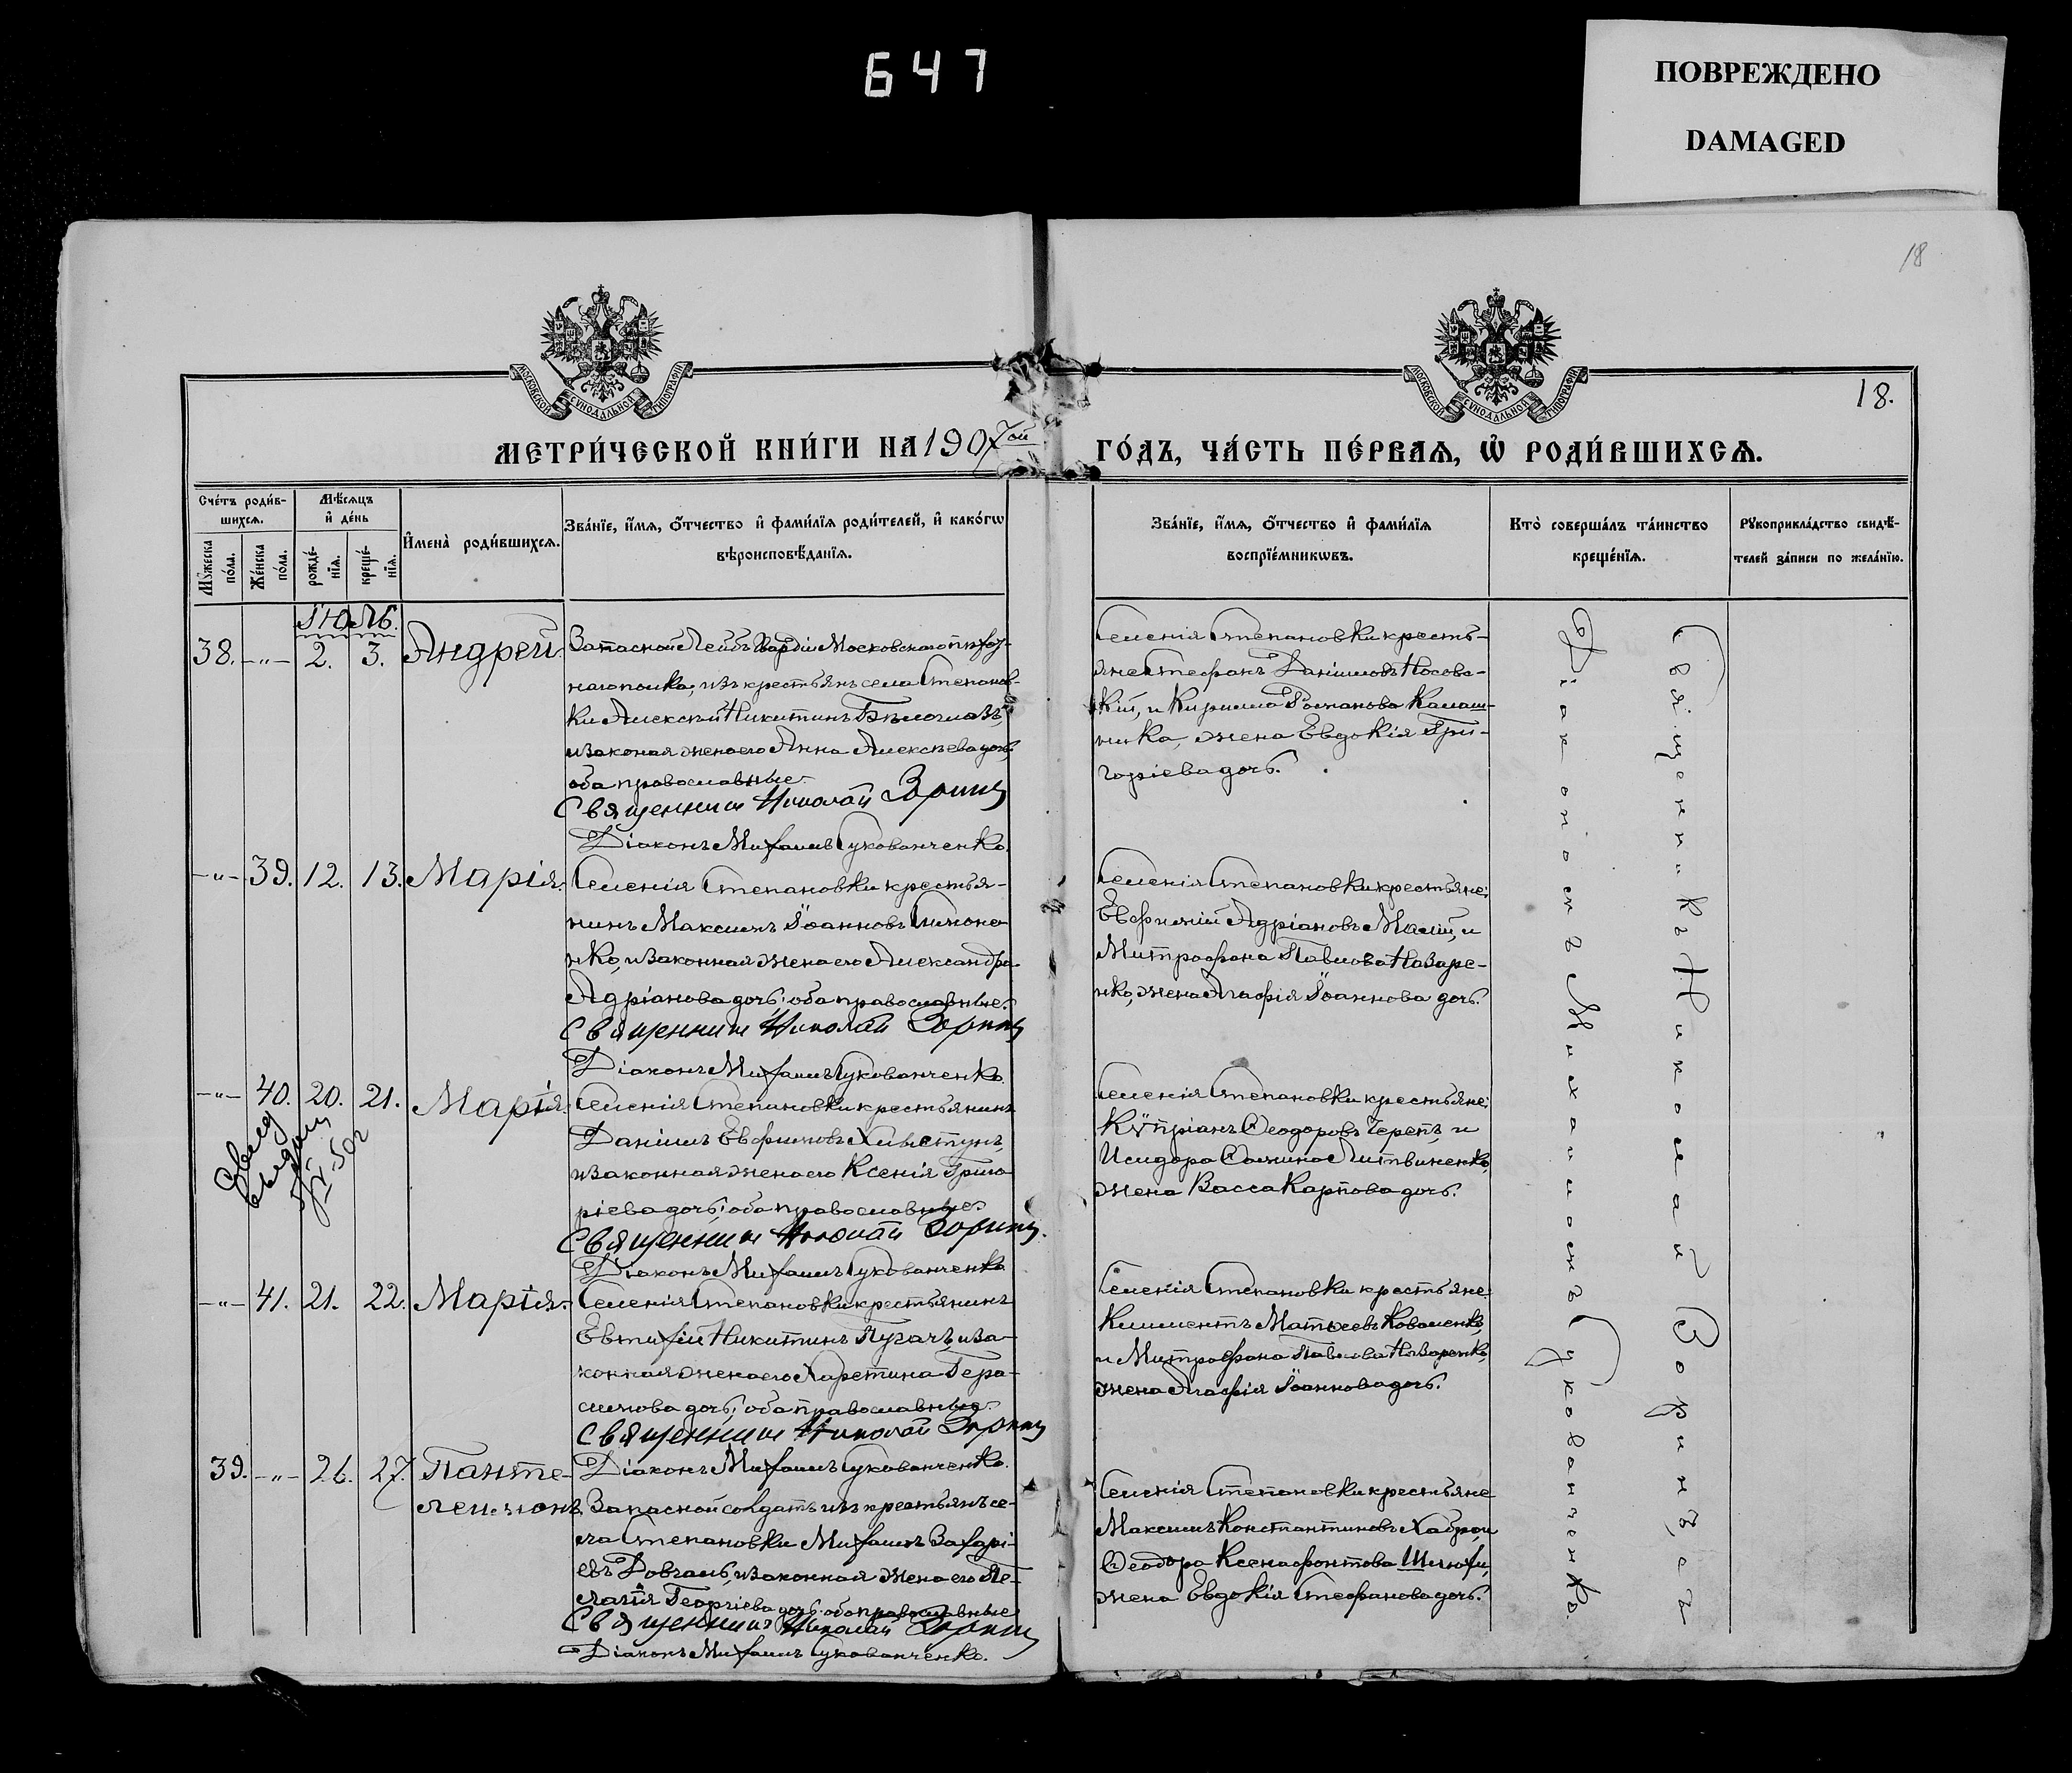 647
ПОВРЕЖДЕНО
DAMAGED
18
18.
МОСКОВСКОЙ СУНОДАЛЬНОЙ ТИПОГРАФІИ
МОСКОВСКОЙ СУНОДАЛЬНОЙ ТИПОГРАФІИ
МЕТРИ́ЧЕСКОЙ КНИ́ГИ НА 1907ой ГО́ДЪ, ЧА́СТЬ ПЕ́РВАѦ, Ѡ҆ РОДИ́ВШИХСѦ.
Сче́тъ роди́в-
шихсѧ.
Мꙋ́жеска по́ла.
Же́нска по́ла.
Мѣ́сѧцъ
и҆ де́нь
рожде́-
нїѧ.
креще́-
нїѧ.
И҆мена̀ роди́вшихсѧ.
Зва́нїе, и҆́мѧ, ѻ҆́тчество и҆ фами́лїѧ роди́телей, и҆ како́гѡ
вѣроисповѣ́данїѧ.
Зва́нїе, и҆́мѧ, ѻ҆́тчество и҆ фами́лїѧ
воспрїе́мникѡвъ.
Кто̀ соверша́лъ та́инство
креще́нїѧ.
Рꙋкоприкла́дство свидѣ́-
телей за́писи по жела́нїю.
Іюль.
38. -"- 2. 3. Андрей.
Запасной Лейбъ Гвардіи Московскаго пѣхот-
наго полка, изъ крестьянъ села Степанов-
ки Алексѣй Никитинъ Бѣлоглазъ,
и законая жена его Анна Алексѣева дочь,
оба православные.
Священникъ Николай Зоринъ
Діаконъ Михаилъ Сукованченко.
Селенія Степановки кресть-
яне Стефанъ Даніиловъ Носов-
кій, и Кирилла Романова Калаш-
ника, жена Евдокія Гри-
горіева дочь.
-"- 39. 12. 13. Марія.
Селенія Степановки крестья-
нинъ Максимъ Іоанновъ Симоне-
нко, и законная жена его Александра
Адріанова дочь; оба православные.
Священникъ Николай Зоринъ
Діаконъ Михаилъ Сукованченко.
Селенія Степановки крестьяне:
Евфимій Адріановъ Малій, и
Митрофана Павлова Назаре-
нко, жена Агафія Іоаннова дочь.
-"- 40. 20. 21. Марія.
Селенія Степановки крестьянинъ
Даніилъ Евфимовъ Хлыстунъ,
и законная жена его Ксенія Григо-
ріева дочь; оба православные.
Священникъ Николай Зоринъ.
Діаконъ Михаилъ Сукованченко
Селенія Степановки крестьяне:
Кѵпріанъ Ѳеодоровъ Черепъ, и
Исидора Фомина Литвиненко,
жена Васса Карпова дочь.
-"- 41. 21. 22. Марія.
Селенія Степановки крестьянинъ
Евтихій Никитинъ Пугачъ, и за-
конная жена его Харетина Гера-
симова дочь; оба православные.
Священникъ Николай Зоринъ
Діаконъ Михаилъ Сукованченко.
Селенія Степановки крестьяне
Климентъ Матѳеевъ Коваленко,
и Митрофана Павлова Назаренко,
жена Агафія Іоаннова дочь.
39. -"- 26. 27. Панте-
леимонъ.
Запасной солдатъ изъ крестьянъ се-
ла Степановки Михаилъ Захарі-
евъ Довгаль, и законная жена его Пе-
лагія Георгіева дочь. оба православные
Священникъ Николай Зоринъ
Діаконъ Михаилъ Сукованченко.
Селенія Степановки крестьяне
Максимъ Константиновъ Хабро, и
Ѳеодора Ксенофонтова
жена Евдокія Стефанова дочь.
Священникъ Николай Зоринъ, съ
Діакономъ Михаиломъ Сукованченкъ.